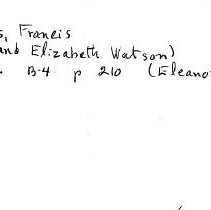 s, Francis
and Elizabeth Watson)
. B-4 p 210 (Eleano